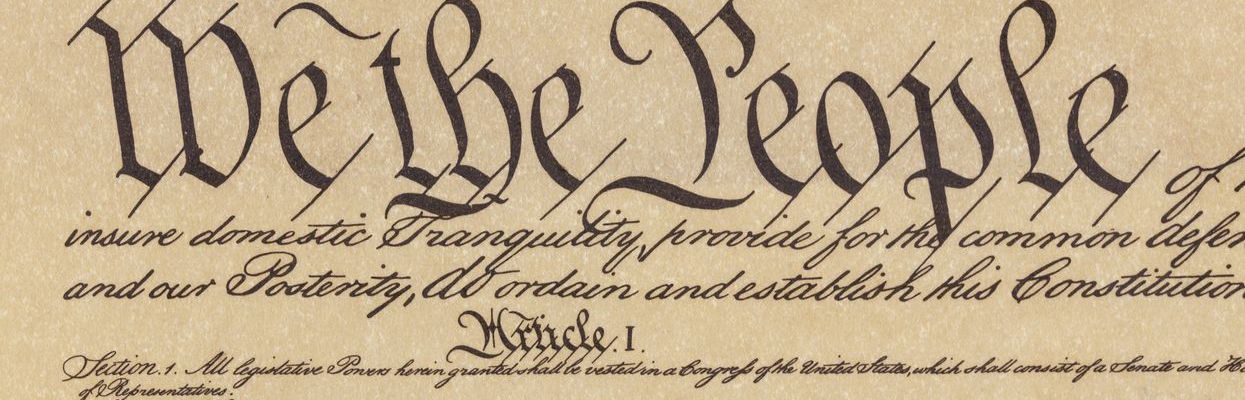 We the People of
insure domestic Tranquility, provide for the common defen
and our Posterity, do ordain and establish this Constitution
Article. I.
Section. 1. All legislative Powers herein granted shall be vested in a Congress of the United States, which shall consist of a Senate and Ho
of Representatives.